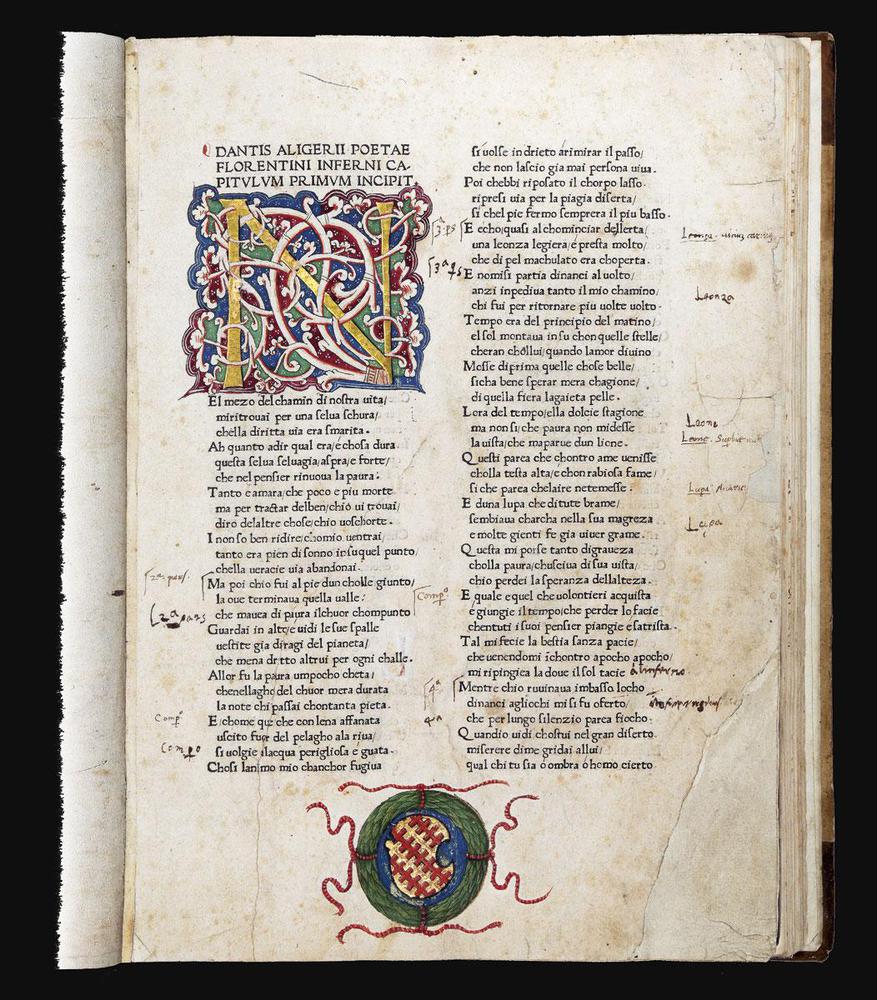 DANTIS ALIGERII POETAE
FLORENTINI INFERNI CA-
PITVLVM PRIMVM INCIPIT.
N
El mezo del chamin di nostra uita/
miritrouai per una selua schura/
chella diritta uia era smarita.
Ah quanto adir qual era/e chosa dura
questa selua seluagia/aspra/e forte/
che nel pensier rinuoua la paura:
Tanto e amara/che poco e piu morte
ma per tractar delben/chio ui trouai/
diro delaltre chose/chio uoschorte.
I non so ben ridire/chomio uentrai/
tanto era pien di sonno insuquel punto/
chella ueracie uia abandonai.
Ma poi chio fui al pie dun cholle giunto/
la oue terminaua quella ualle:
che mauea di paura ilchuor chompunto
Guardai in alto/e uidi le sue spalle
uestite gia diragi del pianeta/
che mena dritto altrui per ogni challe.
Allor fu la paura umpocho cheta/
chenellagho del chuor mera durata
la note chi passai chontanta pieta.
E/chome que che con lena affanata
uscito fuor del pelagho ala riua/
si uolgie alacqua perigliosa e guata.
Chosi lanimo mio chanchor fugiua
si uolse in drieto arimirar il passo/
che non lascio gia mai persona uiua.
Poi chebbi riposato il chorpo lasso.
ripresi uia per la piagia diserta/
si chel pie fermo semprera il piu basso.
E echo/quasi al chominciar dellerta/
una leonza legiera/e presta molto/
che di pel machulato era choperta.
E nomisi partia dinanci al uolto/
anzi inpediua tanto il mio chamino/
chi fui per ritornare piu uolte uolto.
Tempo era del principio del matino/
el sol montaua insu chon quelle stelle/
cheran chollui/quando lamor diuino
Mosse diprima quelle chose belle/
sicha bene sperar mera chagione/
di quella fiera lagaieta pelle.
Lora del tempo/ella dolcie stagione
ma non si/che paura non midesse
la uista/che maparue dun lione.
Questi parea che chontro ame uenisse
cholla testa alta/e chon rabiosa fame/
si che parea chelaire netemesse:
E duna lupa che ditute brame/
sembiaua charcha nella sua magreza
e molte gienti fe gia uiuer grame.
Questa mi porse tanto digraueza
cholla paura/chusciua di sua uista/
chio perdei la speranza dellalteza.
E quale e quel che uolontieri acquista
e giungie il tempo/che perder lo facie
chentuti i suoi pensier piangie e satrista.
Tal mi fecie la bestia sanza pacie/
che uenendomi ichontro apocho apocho/
mi ripingiea la doue il sol tacie
Mentre chio ruuinaua imbasso locho
dinanci agliochi mi si fu oferto/
che per lungo silenzio parea fiocho.
Quandio uidi chostui nel gran diserto.
miserere dime gridai allui/
qual chi tu sia o ombra o homo cierto.
Leonza
Leonza
Leone
Leone.
Lupa
Lupa
2ª pars
Compº
Compº
Compº
3ª ps
3ª ps
4ª
4ª